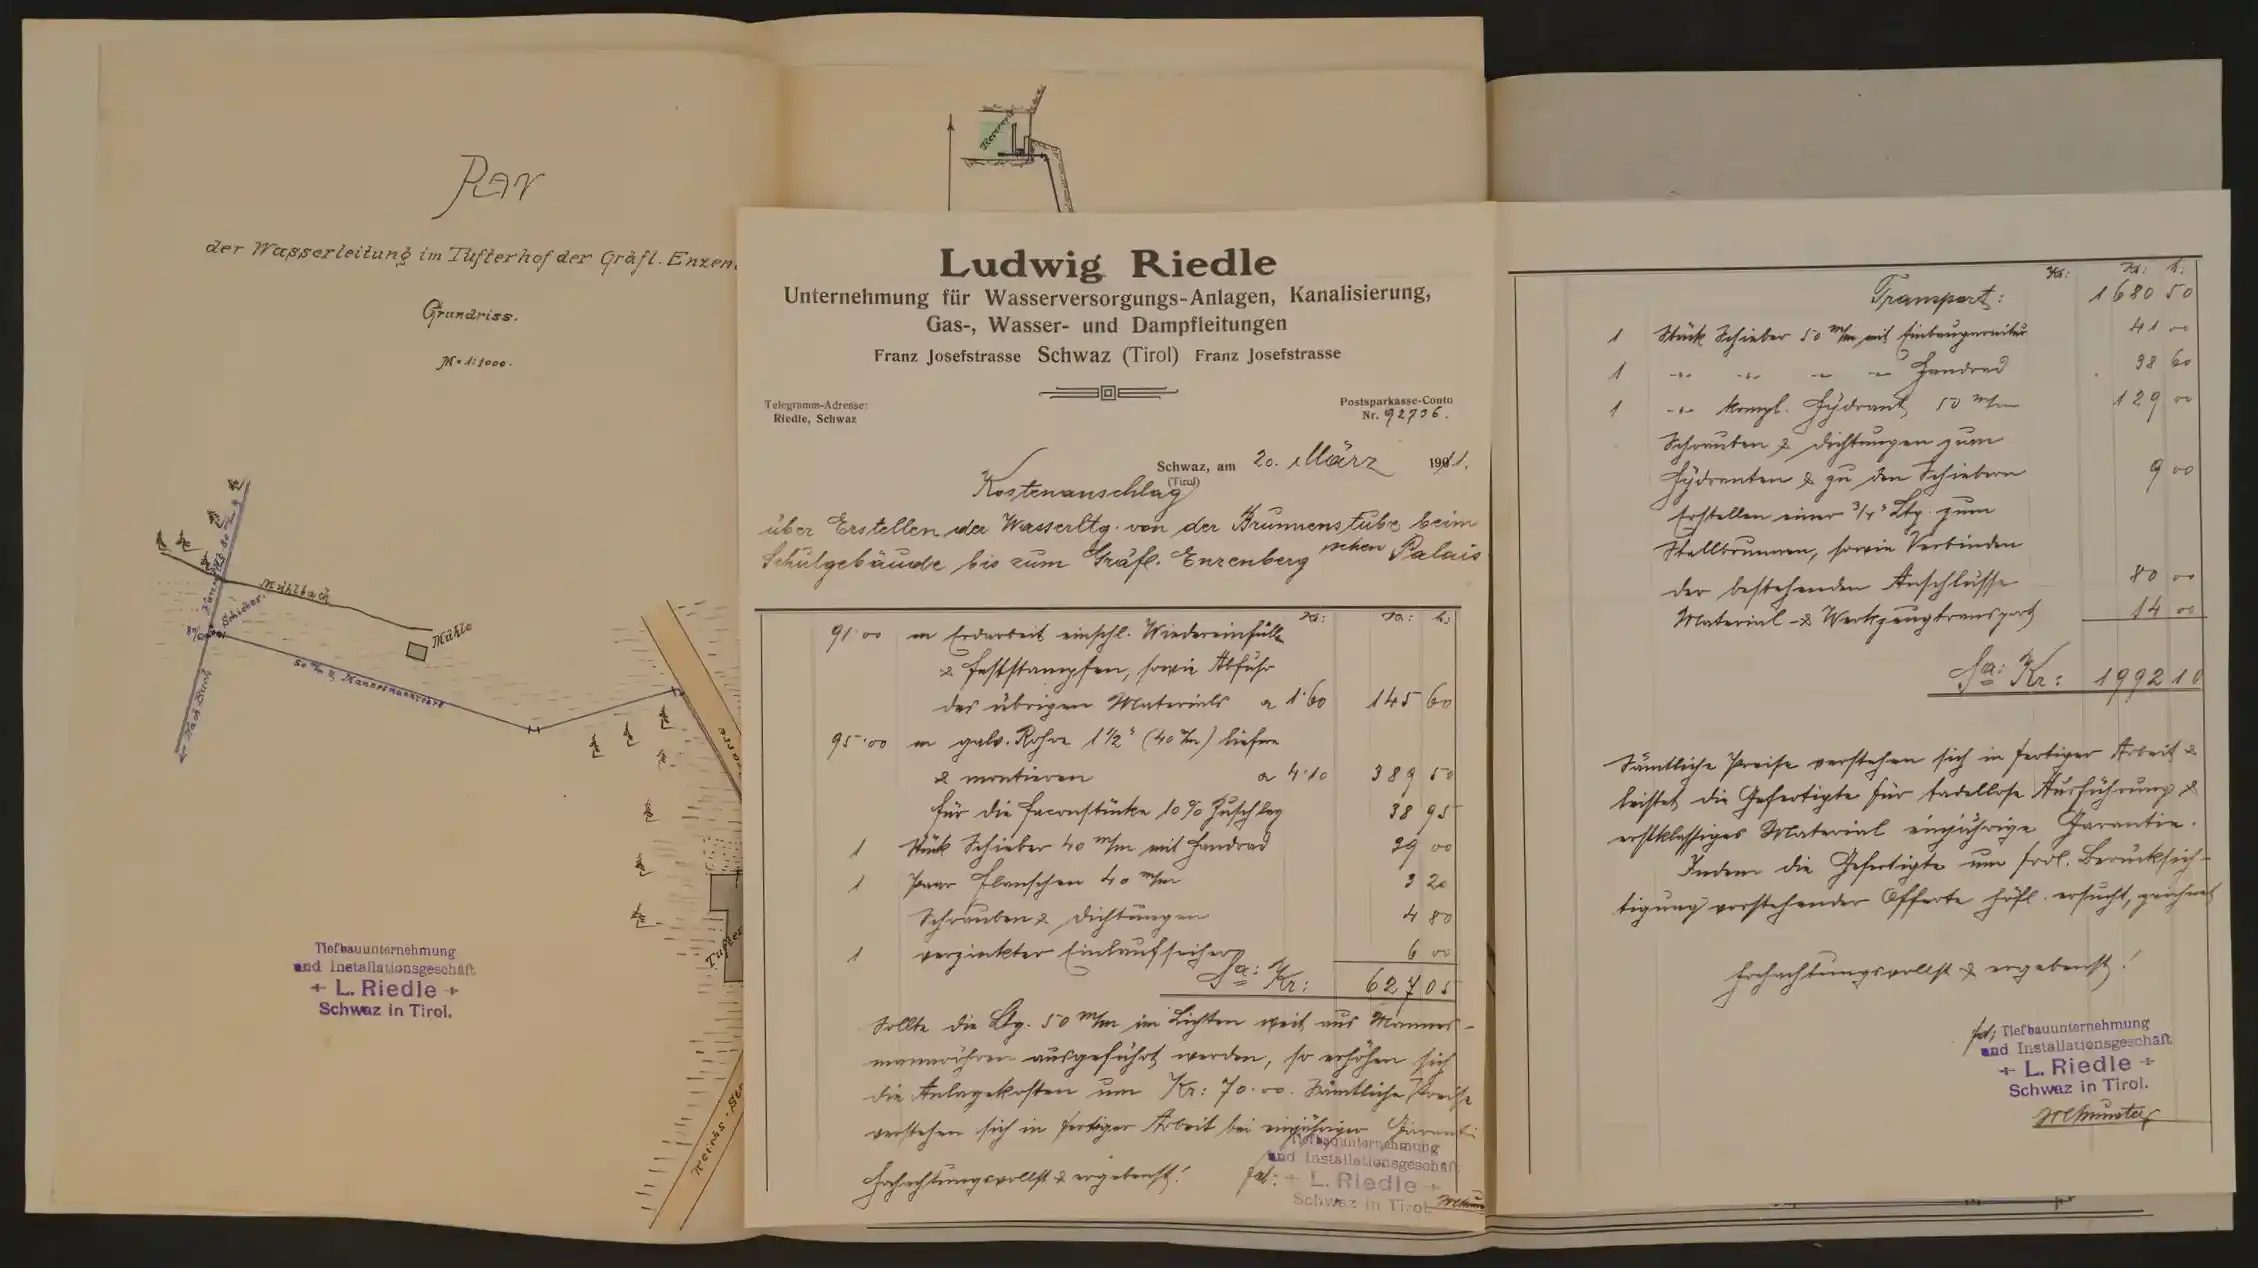 Plan
der Wasserleitung im Tufterhof der Gräfl. Enzen
Grundriss.
M = 1:1000.
Mühlbach
Mühle
Schieber.
50 m/m Mannesmannrohre
nach Buch
Tiefbauunternehmung
und Installationsgeschäft
L. Riedle
Schwaz in Tirol.
Reservoir
Reichs-
Ludwig Riedle
Unternehmung für Wasserversorgungs-Anlagen, Kanalisierung,
Gas-, Wasser- und Dampfleitungen
Franz Josefstrasse Schwaz (Tirol) Franz Josefstrasse
Telegramm-Adresse:
Riedle, Schwaz
Postsparkasse-Conto
Nr. 92736.
Schwaz, am 20. März 1911.
(Tirol)
Kostenanschlag
über Erstellen der Wasserltg. von der Brunnenstube beim
Schulgebäude bis zum Gräfl. Enzenberg'schen Palais
Kr: Kr: h:
91·00 m Erdarbeit einschl. Wiedereinfüllen
& feststampfen, sowie Abfuhr
des übrigen Materials a 1·60 145 60
95·00 m galv. Rohre 1½" (40 m/m) liefern
& montieren a 4·10 389 50
für die Faconstücke 10% Zuschlag 38 95
1 Stück Schieber 40 m/m mit Handrad 39 00
1 Paar Flanschen 40 m/m 3 20
Schrauben & Dichtungen 4 80
1 verzinkter Einlaufseiher 6 00
Sa: Kr: 627 05
Sollte die Ltg. 50 m/m im Lichten weit aus Mannes-
mannröhren ausgeführt werden, so erhöhen sich
die Anlagekosten um Kr: 70·00. Sämtliche Preise
verstehen sich in fertiger Arbeit bei einjähriger Garantie
Hochachtungsvollst & ergebenst!
Tiefbauunternehmung
und Installationsgeschäft
L. Riedle
Schwaz in Tirol.
Kr: Kr: h:
Transport: 1680 50
1 Stück Schieber 50 m/m mit Einbaugarnitur 41 00
1 -"- -"- -"- -"- Handrad 38 60
1 -"- kompl. Hydrant 50 m/m 129 00
Schrauben & Dichtungen zum
Hydranten & zu den Schiebern 9 00
Erstellen einer ¾" Ltg. zum
Stallbrunnen, sowie Verbinden
der bestehenden Anschlüsse 80 00
Material- & Werkzeugtransport 14 00
Sa: Kr: 1992 10
Sämtliche Preise verstehen sich in fertiger Arbeit &
leistet die Gefertigte für tadellose Ausführung &
erstklassiges Material einjährige Garantie.
Indem die Gefertigte um frdl. Berücksich-
tigung vorstehender Offerte höfl. ersucht, zeichnet
Hochachtungsvollst & ergebenst!
Tiefbauunternehmung
und Installationsgeschäft
L. Riedle
Schwaz in Tirol.